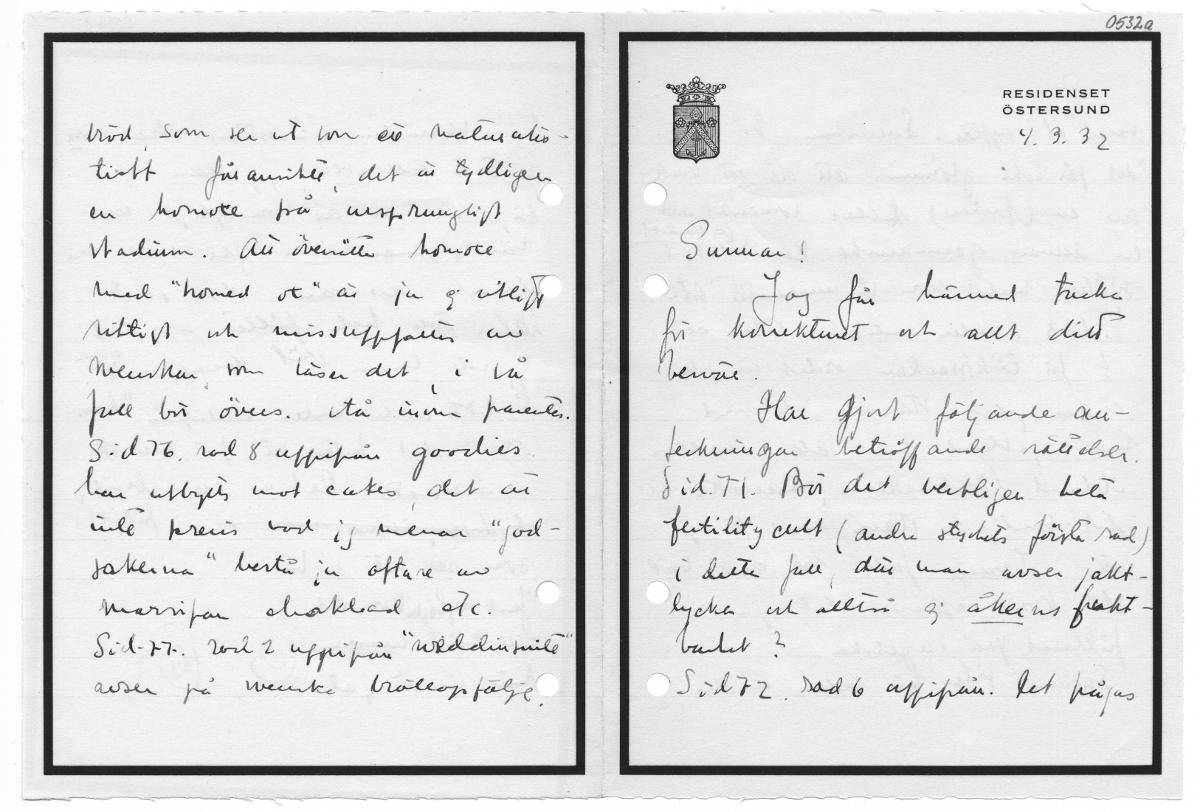 bröd, som ser ut som ett naturalis-
tiskt fåransikte, det är tydligen
en komoxe från ursprungligt
stadium. Att översätta komoxe
med "horned ox" är ju ej
riktigt och missuppfattas av
svenskar, som läser det, i så
fall bör övers. stå inom parentes.
Sid 76. rad 8 uppifrån goodies
har utbytts mot cakes, det är
inte precis vad jag menar "god-
sakerna" bestå ju oftare av
marsipan choklad etc.
Sid. 77. rad 2 uppifrån "weddinsuite"
avser på svenska bröllopsfölje.
0532a
RESIDENSET
ÖSTERSUND
4.3.32
Gunnar!
Jag får härmed tacka
för korrekturet och allt ditt
besvär.
Har gjort följande an-
teckningar beträffande rättelser.
Sid. 71. Bör det verkligen heta
fertility cult (andra styckets första rad)
i detta fall, där man avser jakt-
lycka och alltså ej åkerns frukt-
barhet?
Sid 72. rad 6 uppifrån. Det frågas